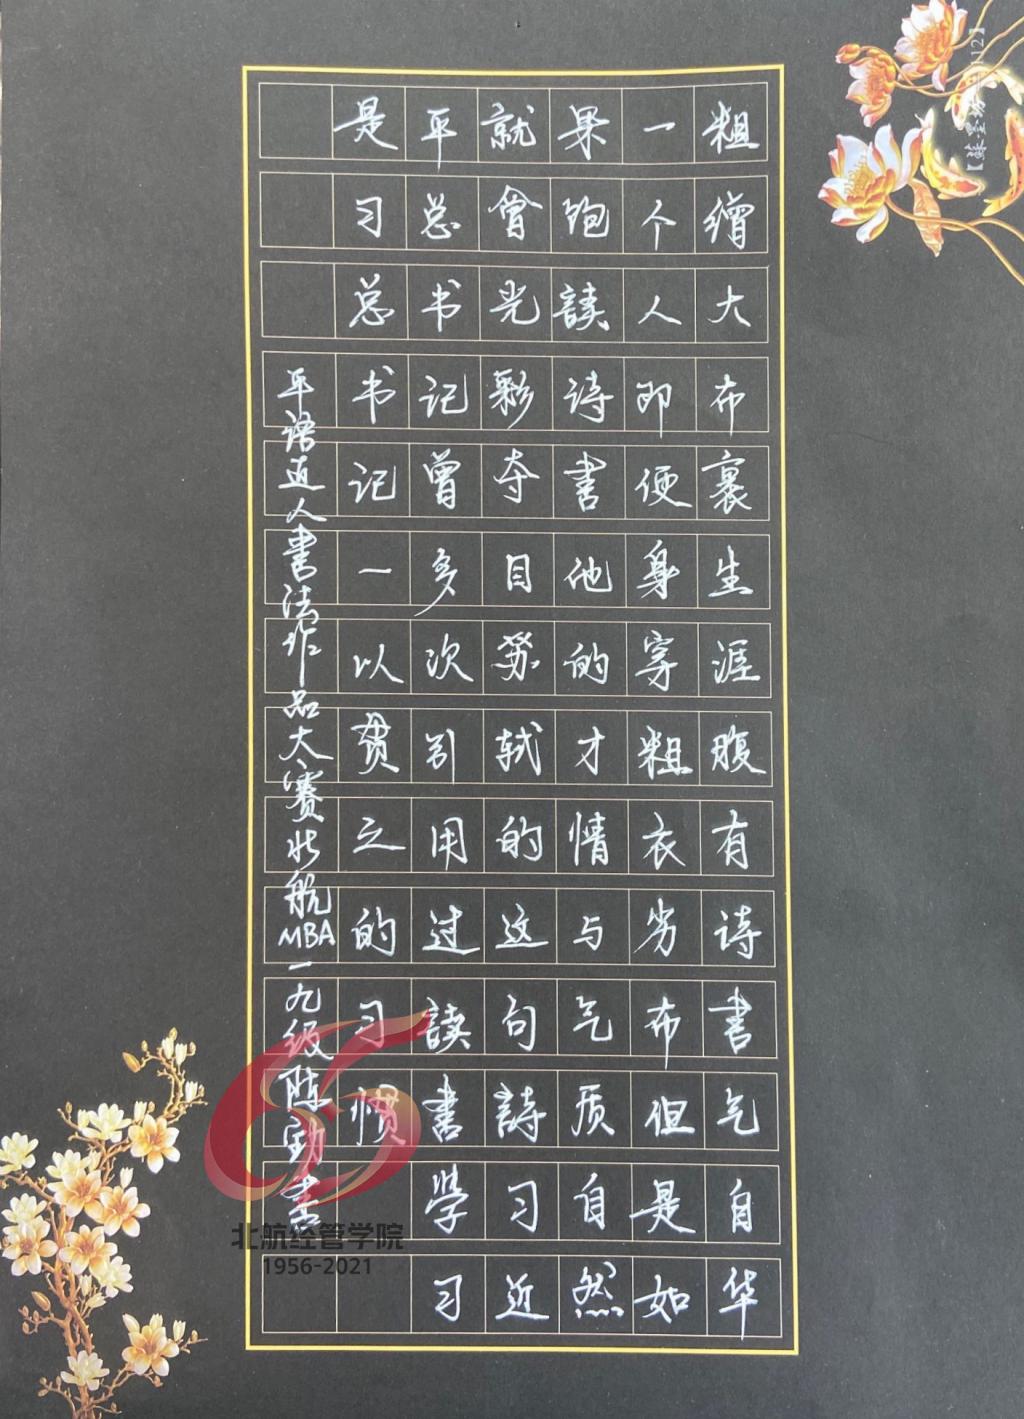 粗缯大布裹生涯腹有诗书气自华
一个人即便身穿粗衣劣布但是如
果饱读诗书他的才情与气质自然
就会光彩夺目苏轼的这句诗习近
平总书记曾多次引用过读书学习
是习总书记一以贯之的习惯
平语近人书法作品大赛北航MBA一九级陈劲书
北航经管学院
1956-2021